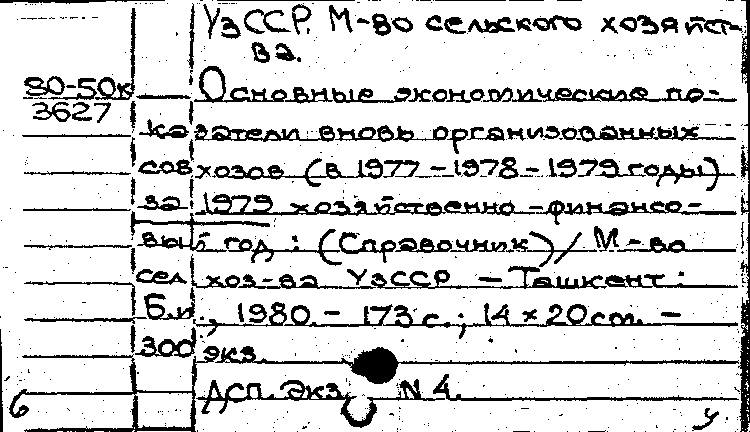 УзССР. М-во сельского хозяйст-
ва.
80-50к
3627
Основные экономические по-
казатели вновь организованных
совхозов (в 1977-1978-1979 годы)
за 1979 хозяйственно-финансо-
вый год: (Справочник) / М-во
сел хоз-ва УзССР — Ташкент:
Б.и., 1980. - 173 с.; 14 × 20 cm. -
300 экз.
ДСП. Экз. N 4.
6
у